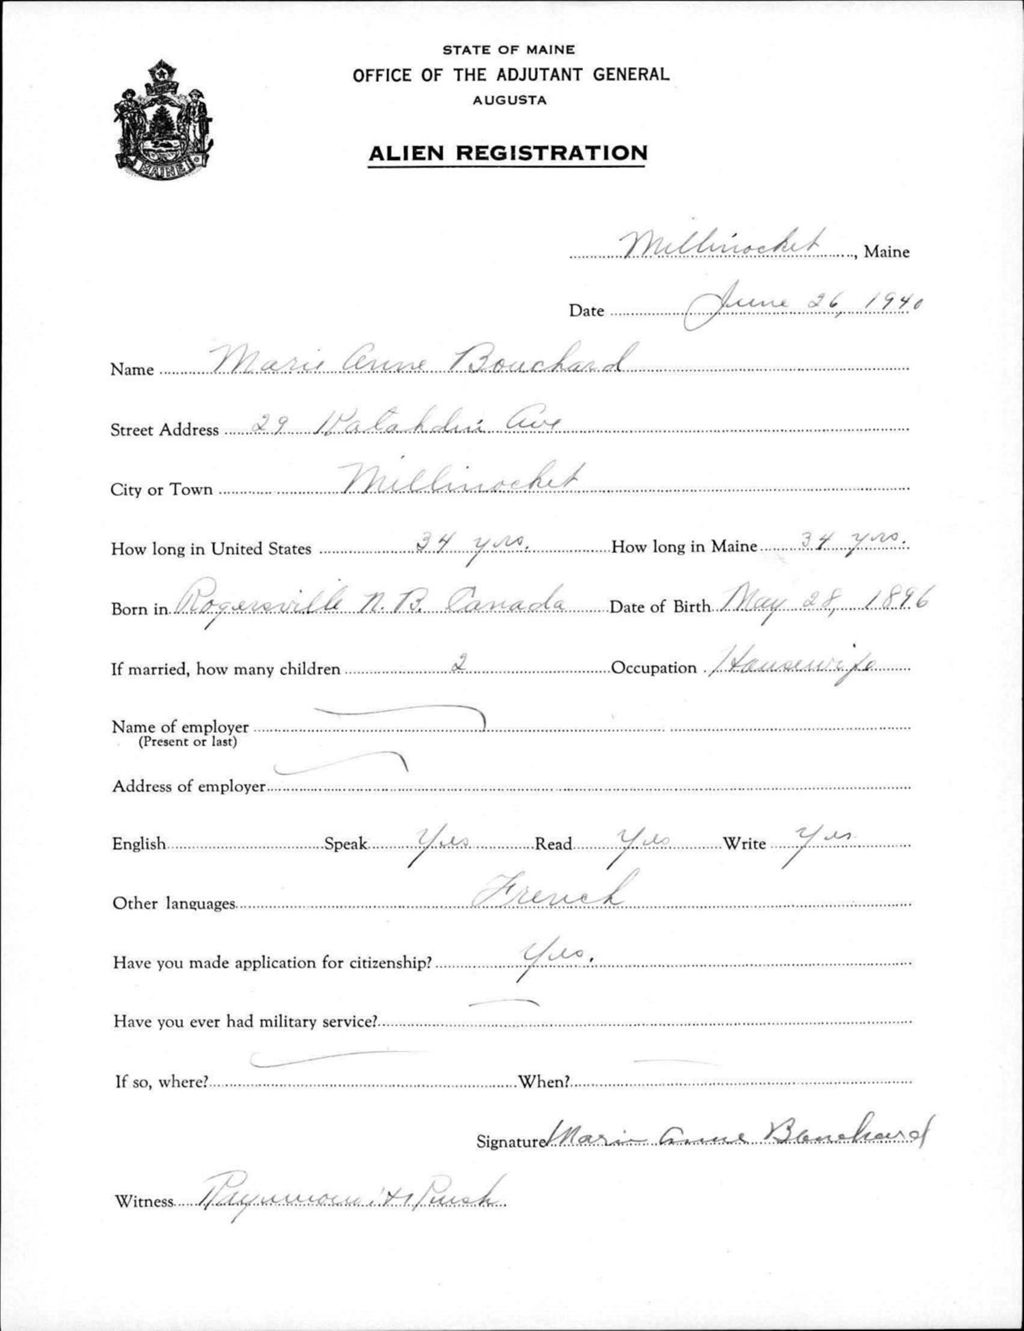 STATE OF MAINE
OFFICE OF THE ADJUTANT GENERAL
AUGUSTA
ALIEN REGISTRATION
MAINE
Millinocket, Maine
Date June 26, 1940
Name Marie Anne Bouchard
Street Address 29 Katahdin Ave
City or Town Millinocket
How long in United States 34 yrs. How long in Maine 34 yrs.
Born in Rogersville N.B. Canada Date of Birth May 28, 1896
If married, how many children 2 Occupation Housewife
Name of employer
(Present or last)
Address of employer
English Speak Yes Read Yes Write Yes
Other languages French
Have you made application for citizenship? Yes.
Have you ever had military service?
If so, where? When?
Signature Marie Anne Bouchard
Witness Raymond Rush